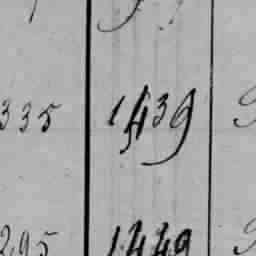 335 1,439
295 1,449